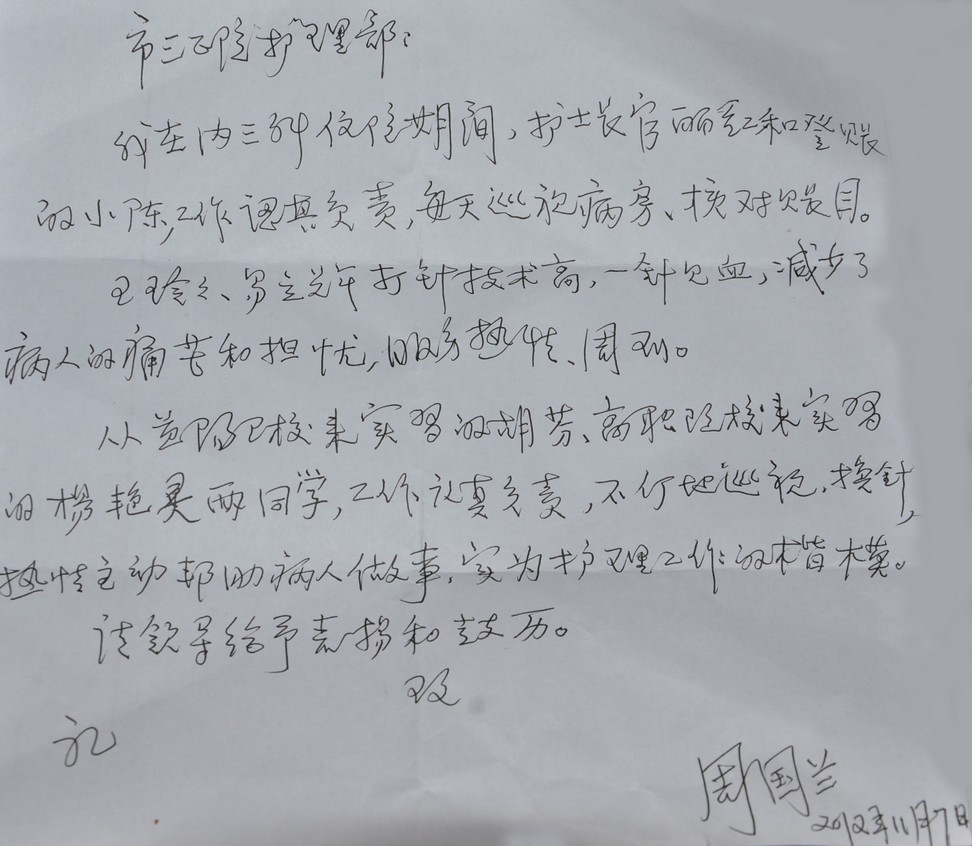 市三医院护理部：
我在内三科住院期间，护士长官丽红和登账
的小陈，工作認真负责，每天巡视病房、核对账目。
王玲、易立 打针技术高，一针见血，减少了
病人的痛苦和担忧，服务热情、周到。
从益阳卫校来实习的胡芬、高职院校来实习
的楊艳灵两同学，工作认真负责，不停地巡视，换針，
热情主动帮助病人做事，实为护理工作的楷模。
请领导给予表扬和鼓励。
致
礼
周国兰
2012年11月7日